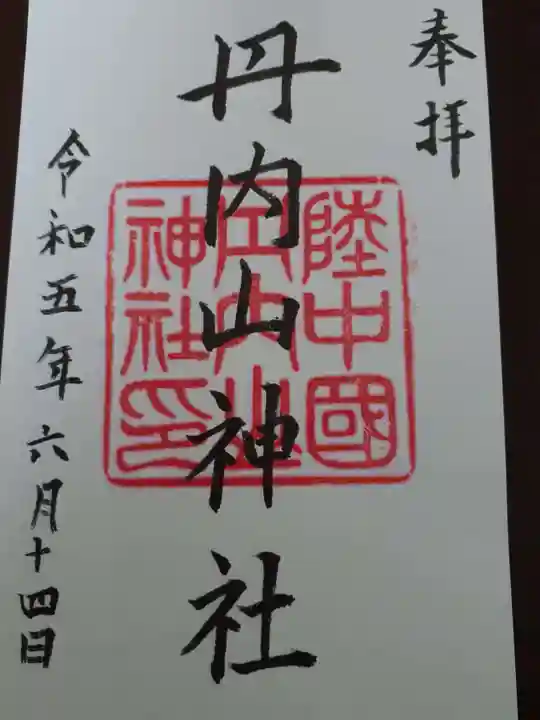 奉拝
丹内山神社
陸中國
丹内山
神社印
令和五年六月十四日